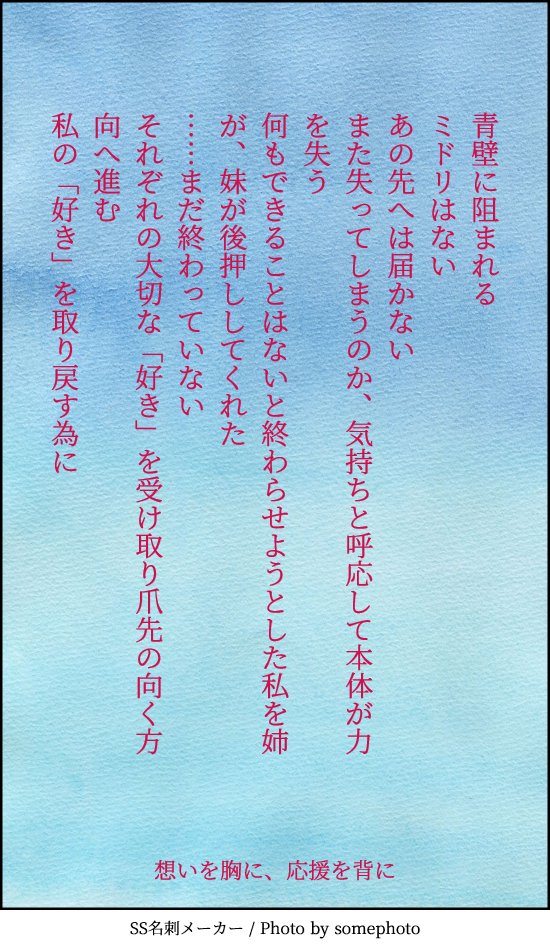 青壁に阻まれる
ミドリはない
あの先へは届かない
また失ってしまうのか、気持ちと呼応して本体が力
を失う
何もできることはないと終わらせようとした私を姉
が、妹が後押ししてくれた
……まだ終わっていない
それぞれの大切な「好き」を受け取り爪先の向く方
向へ進む
私の「好き」を取り戻す為に
想いを胸に、応援を背に
SS名刺メーカー / Photo by somephoto